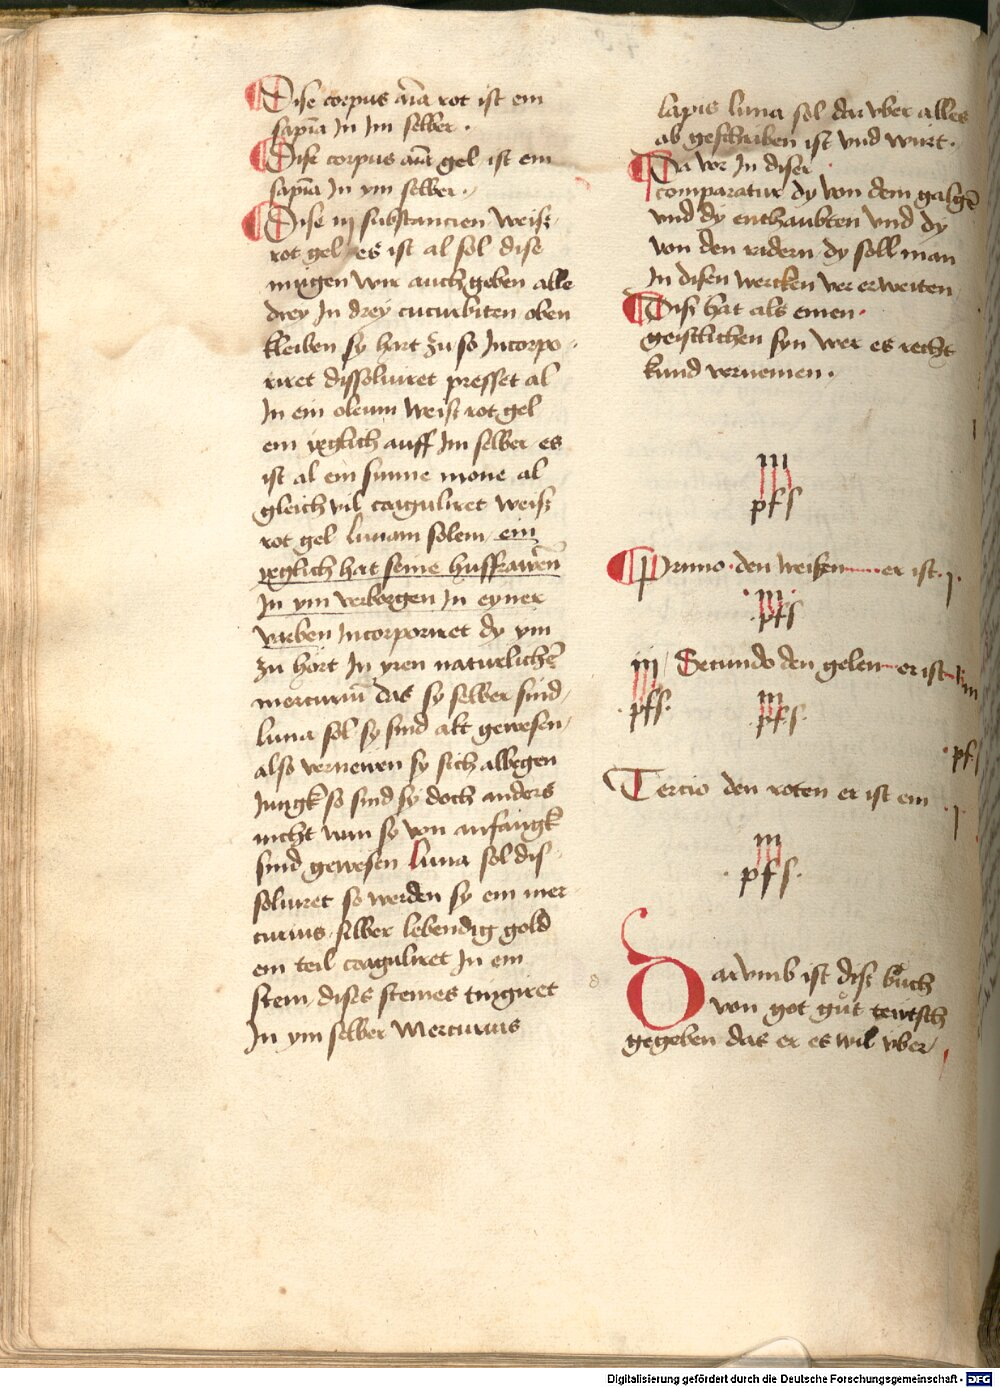 Dise corpus aīa rot ist ein
sapīa In Im selber ·
Dise corpus aīa gel ist ein
sapīa In ym selber ·
Dise iij substancien weiß
rot gel es ist al sol dise
mügen wir auch geben alle
drey In drey cucurbiten oben
kleiben sy hart zu so Incorpo
riret dissoluiret presset al
In ein oleum weiß rot gel
ein yglich auff Im selber es
ist al ein sunne mone al
gleich vil coaguliret weiß
rot gel lunam solem ein
yglich hat seine huffrawen
In ym verborgen In eyner
varben Incorporiret dy ym
zu hort In yren naturlichē
mercuriū das sy selber sind
luna sol sy sind alt gewesen
also vernewen sy sich albegen
Jungk so sind sy doch anders
nicht wan sy von anfangk
sind gewesen luna sol dis
soluiret so werden sy ein mer
curius silber lebendig gold
ein teil coaguliret In ein
stein dises steines tingiret
In ym selber Mercurius
lapis luna sol dar vber alles
ab geschriben ist vnd wurt ·
Da vor In diser
comparatur dy von dem galgē
vnd dy enthaubten vnd dy
von den radern dy soll man
In disen wercken ver erweiten
Dis hat als einen
geistlichen syn wer es recht
kund vernemen ·
iij
pfs
Primo · den weisen er ist · j ·
iij
pfs
iij Secundo den gelen er ist
pfs · iij
pfs ·
pfs
Tercio den roten er ist ein j
iij
· pfs ·
Darvmb ist dis buch
von got gut teutsch
gegeben das er es wil vber
Digitalisierung gefördert durch die Deutsche Forschungsgemeinschaft - DFG